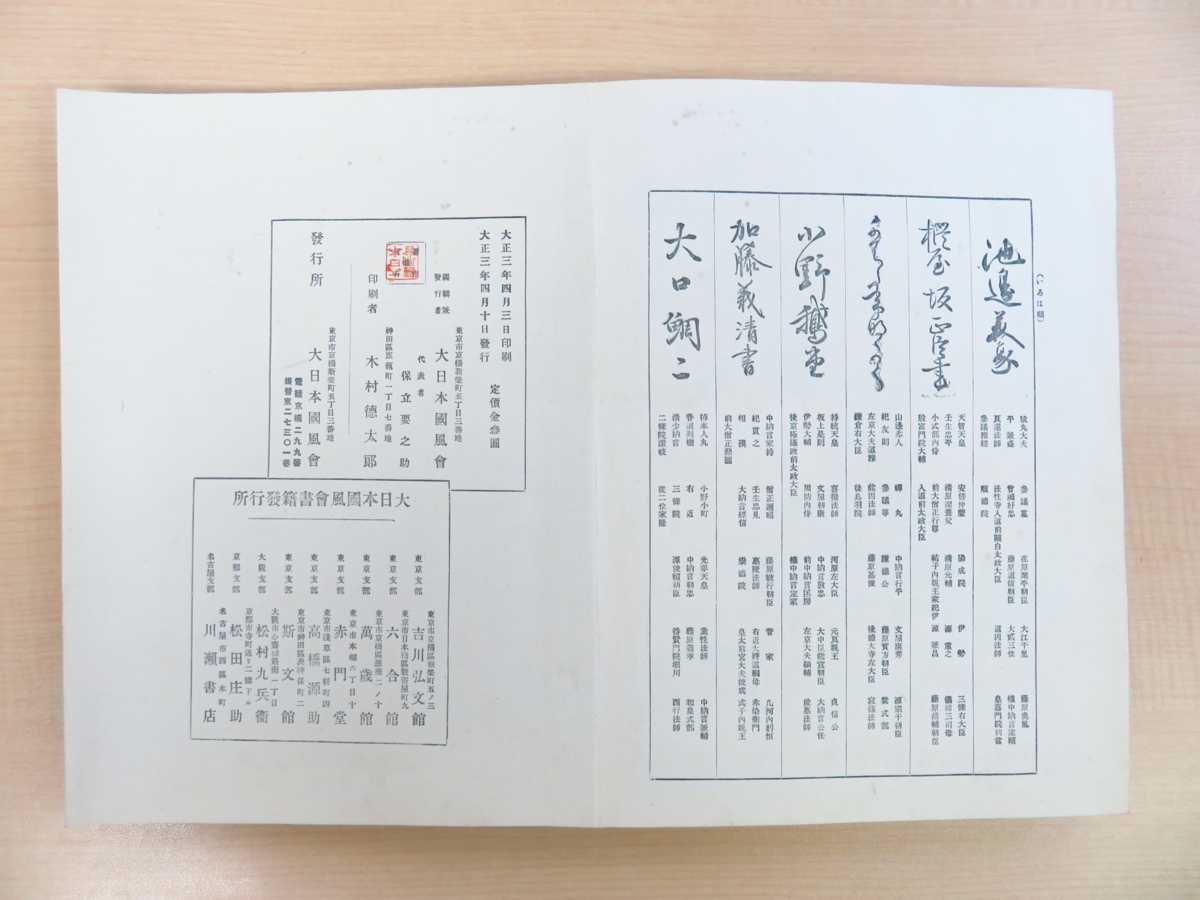 (いろは順)
池邊義象
猿丸大夫
平兼盛
良暹法師
參議雅經
參議篁
曾禰好忠
法性寺入道前關白太政大臣
順德院
在原業平朝臣
藤原道信朝臣
大江千里
大貳三位
道因法師
藤原興風
權中納言定賴
皇嘉門院別當
天智天皇
壬生忠岑
小式部內侍
殷富門院大輔
安倍仲麿
清原深養父
前大僧正行尊
入道前太政大臣
陽成院
清原元輔
祐子內親王家紀伊
伊勢
源重之
源兼昌
三條右大臣
儀同三司母
藤原清輔朝臣
山邊赤人
紀友則
左京大夫道雅
鎌倉右大臣
蟬丸
參議等
能因法師
後鳥羽院
中納言行平
謙德公
藤原基俊
文屋康秀
藤原實方朝臣
後德大寺左大臣
源宗于朝臣
紫式部
寂蓮法師
小野鵞堂
持統天皇
坂上是則
伊勢大輔
後京極攝政前太政大臣
喜撰法師
文屋朝康
周防內侍
河原左大臣
中納言敦忠
前中納言匡房
權中納言定家
元良親王
大中臣能宣朝臣
左京大夫顯輔
貞信公
大納言公任
俊惠法師
加藤義清書
中納言家持
紀貫之
相模
前大僧正慈圓
僧正遍昭
壬生忠見
大納言經信
藤原敏行朝臣
惠慶法師
崇德院
菅家
右近大將道綱母
皇太后宮大夫俊成
凡河內躬恒
赤染衛門
式子內親王
大口鯛二
柿本人丸
春道列樹
清少納言
二條院讚岐
小野小町
右近
三條院
從二位家隆
光孝天皇
中納言朝忠
源俊賴朝臣
素性法師
藤原義孝
待賢門院堀川
中納言兼輔
和泉式部
西行法師
大正三年四月三日印刷
大正三年四月十日發行
定價金參圓
東京市京橋區新榮町五丁目三番地
編輯兼發行者
大日本國風會
代表者
保立要之助
神田區旅籠町一丁目七番地
印刷者
木村德太郎
東京市京橋新榮町五丁目三番地
發行所
大日本國風會
電話京橋二九九番
振替東二七三〇一番
大日本國風會書籍發行所
東京市京橋區新榮町五ノ三
東京支部
吉川弘文館
東京市日本橋區數寄屋町九
東京支部
六合館
東京市京橋區銀座二ノ十
東京支部
萬歲館
東京市本鄉六丁目十
東京支部
赤門堂
東京市淺草區七軒町四
東京支部
高橋源助
東京市神田區表神保町二
東京支部
斯文館
大阪市心齋橋筋南一丁目
大阪支部
松村九兵衞
京都市寺町通り二條下ル
京都支部
松田庄助
名古屋市西區本町
名古屋支部
川瀨書店